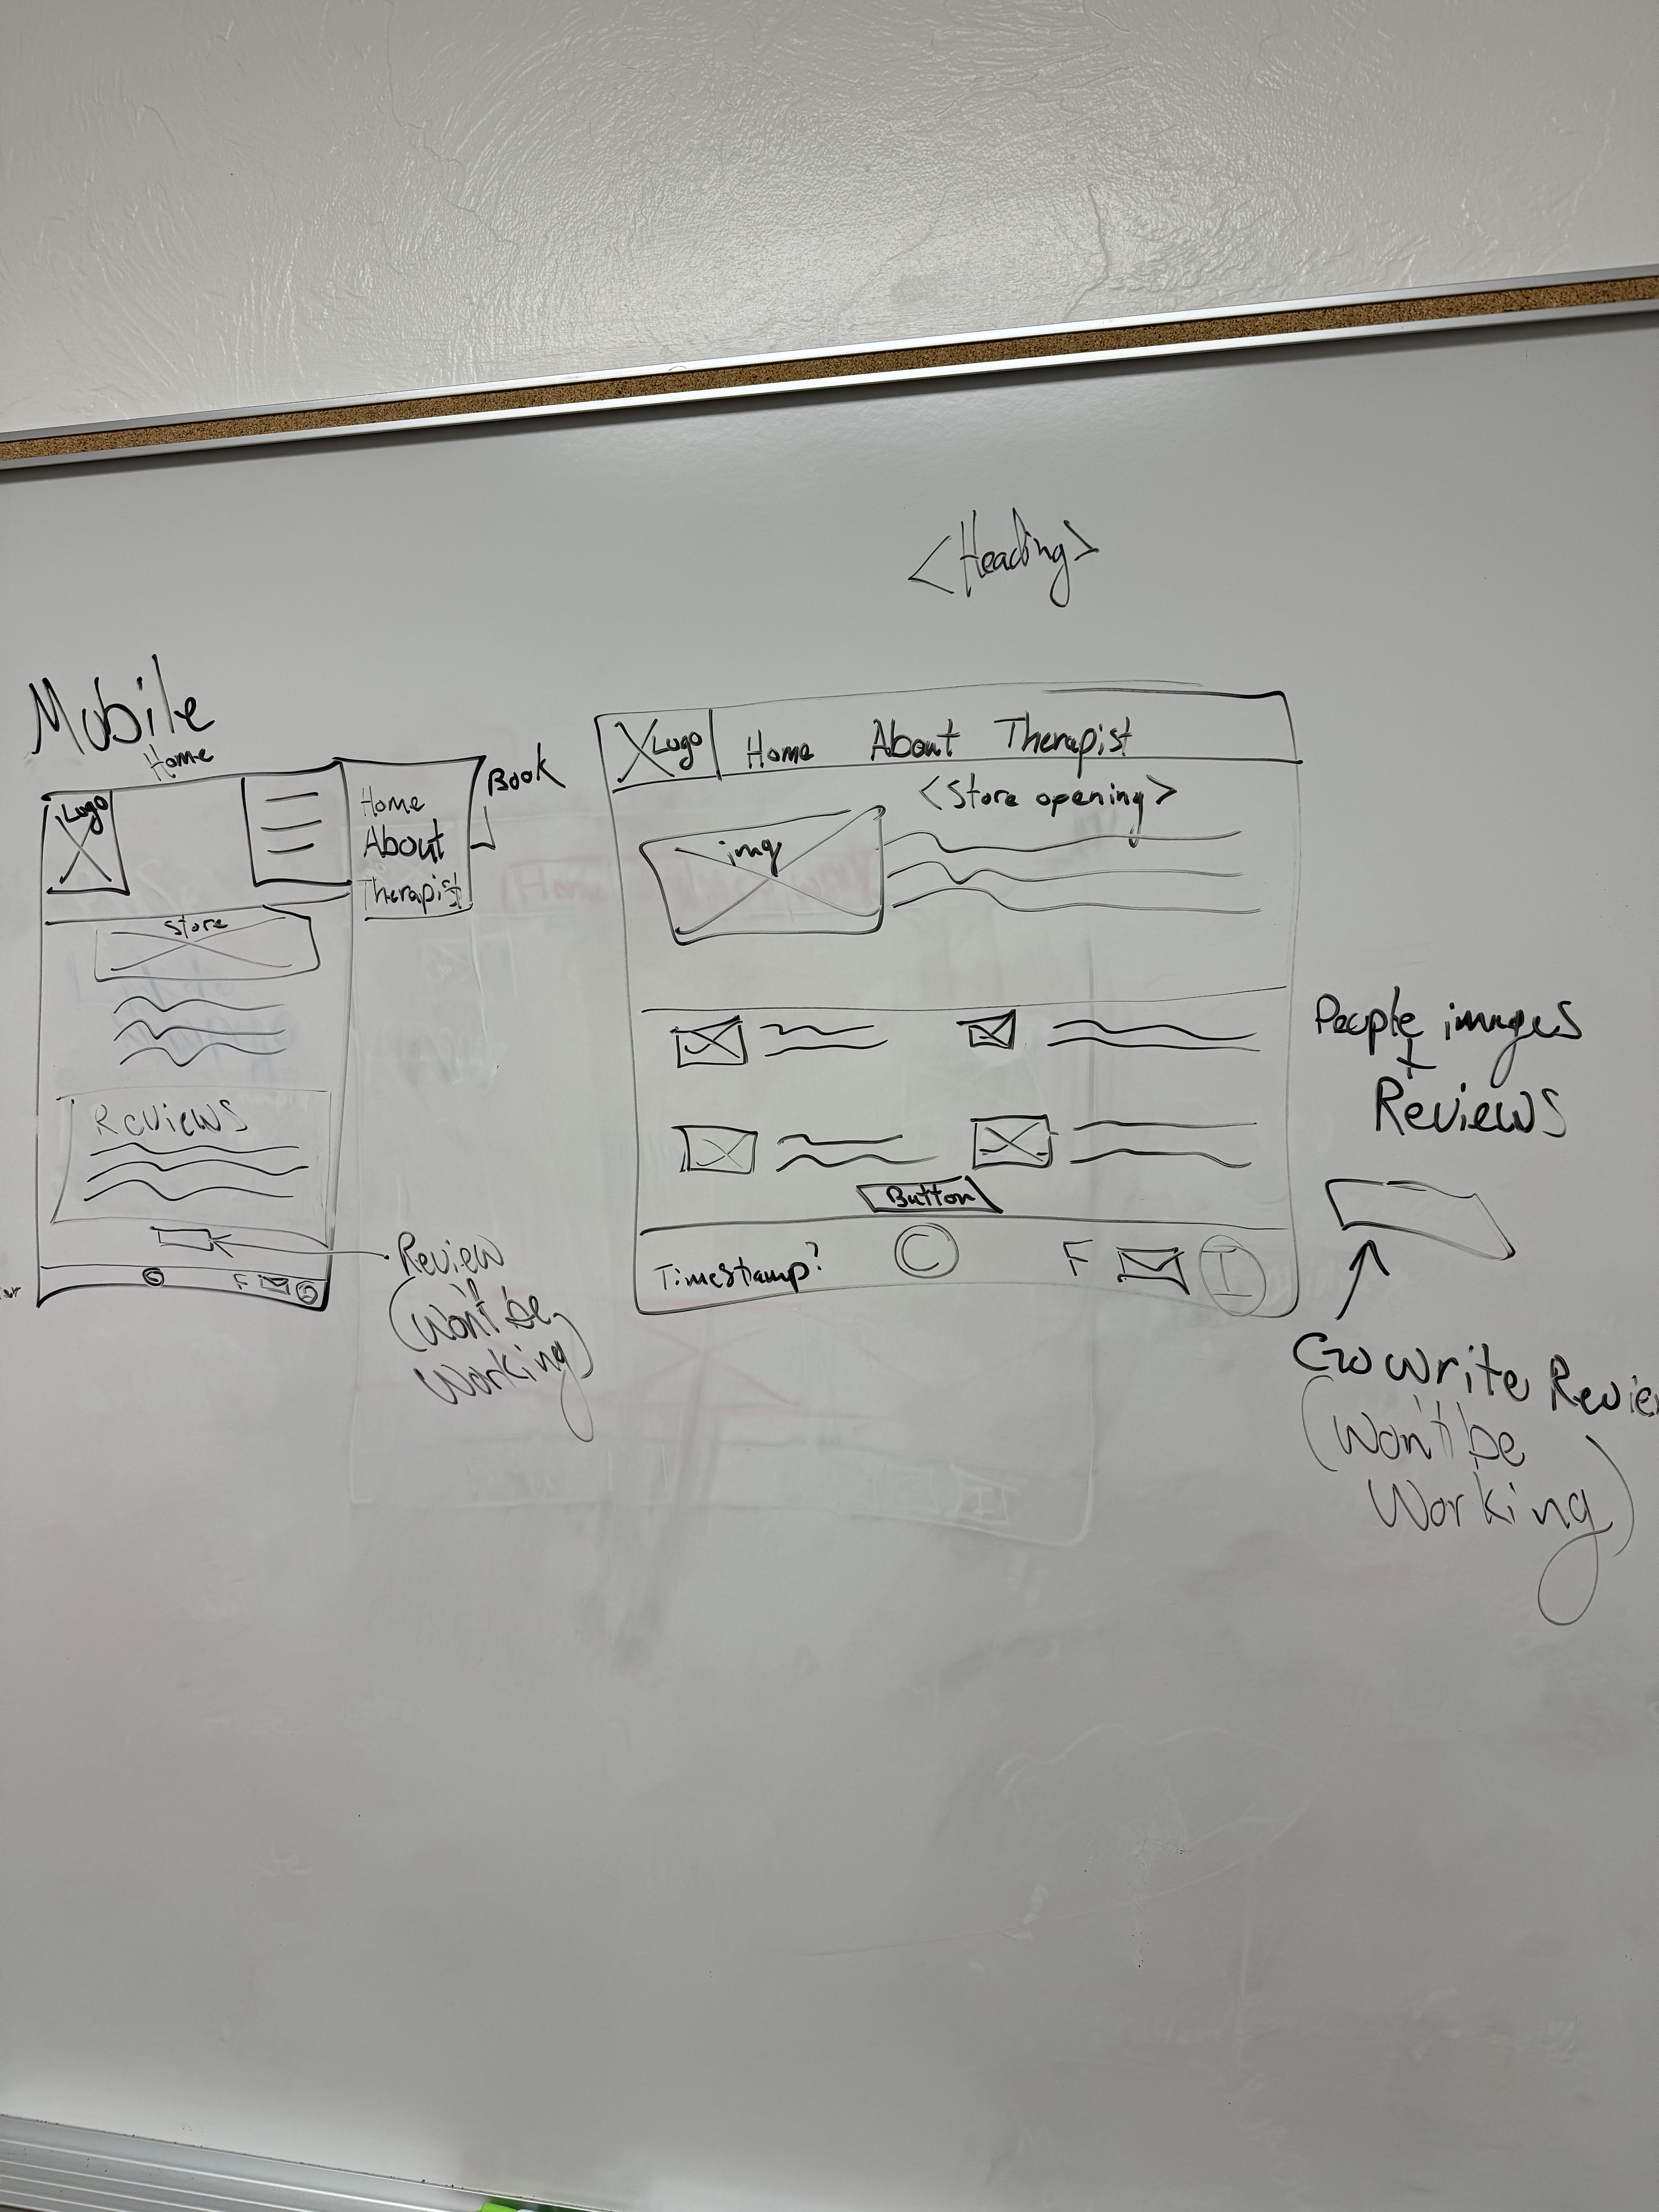 <Heading>
Mobile
Home
Logo
Home
About
Therapist
Book
Store
Reviews
©
F
Review
(Won't be
Working)
Logo
Home About Therapist
<Store opening>
img
Button
Timestamp?
©
F
I
People images
+
Reviews
Go write Revie
(Won't be
Working)